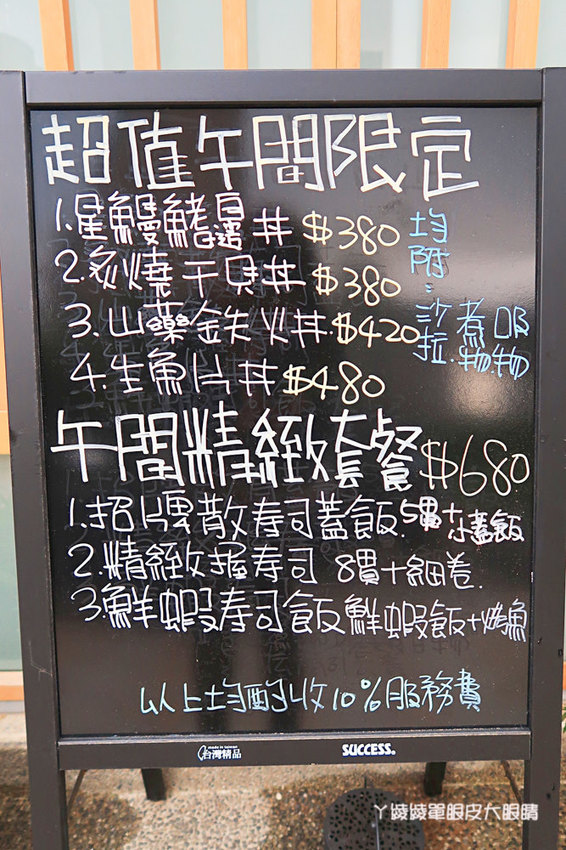 超值午間限定
1.星鰻鰭邊丼 $380
2.炙燒干貝丼 $380
3.山藥鉄火丼 $420
4.生魚片丼 $480
均附:
沙拉.煮物.吸物
午間精緻套餐 $680
1.招牌散寿司蓋飯 5貫+小蓋飯
2.精緻握寿司 8貫+細卷.
3.鮮蝦寿司飯 鮮蝦飯+烤魚
以上均酌收10%服務費
made in taiwan
台灣精品
SUCCESS®
ㄚ綾綾單眼皮大眼睛